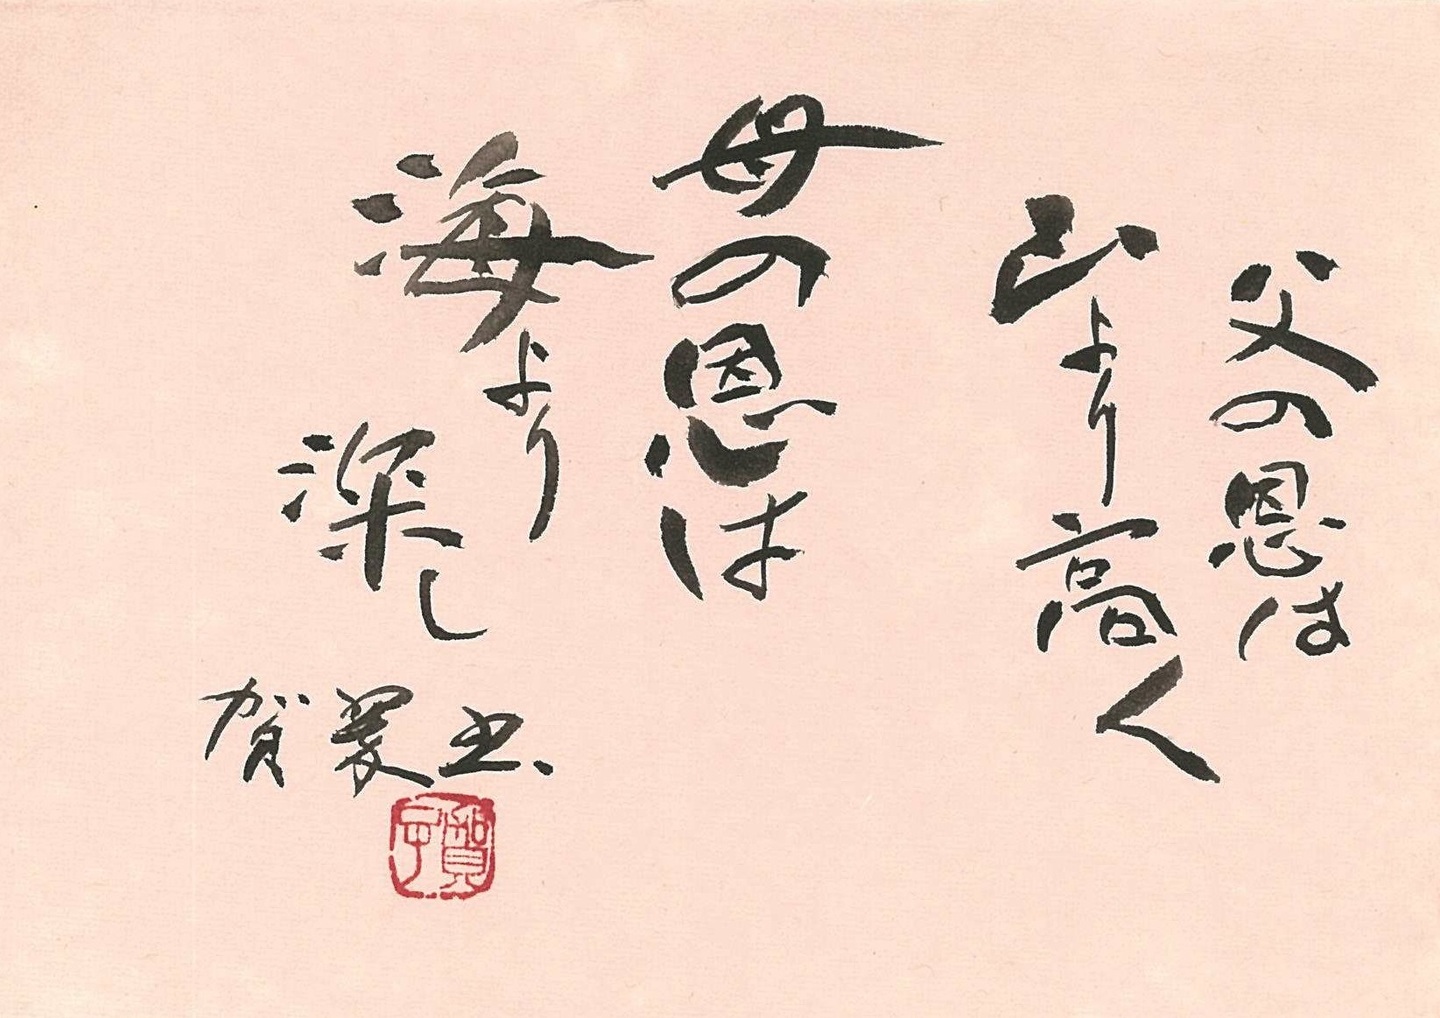 父の恩は
山より高く
母の恩は
海より
深し
賀翠書